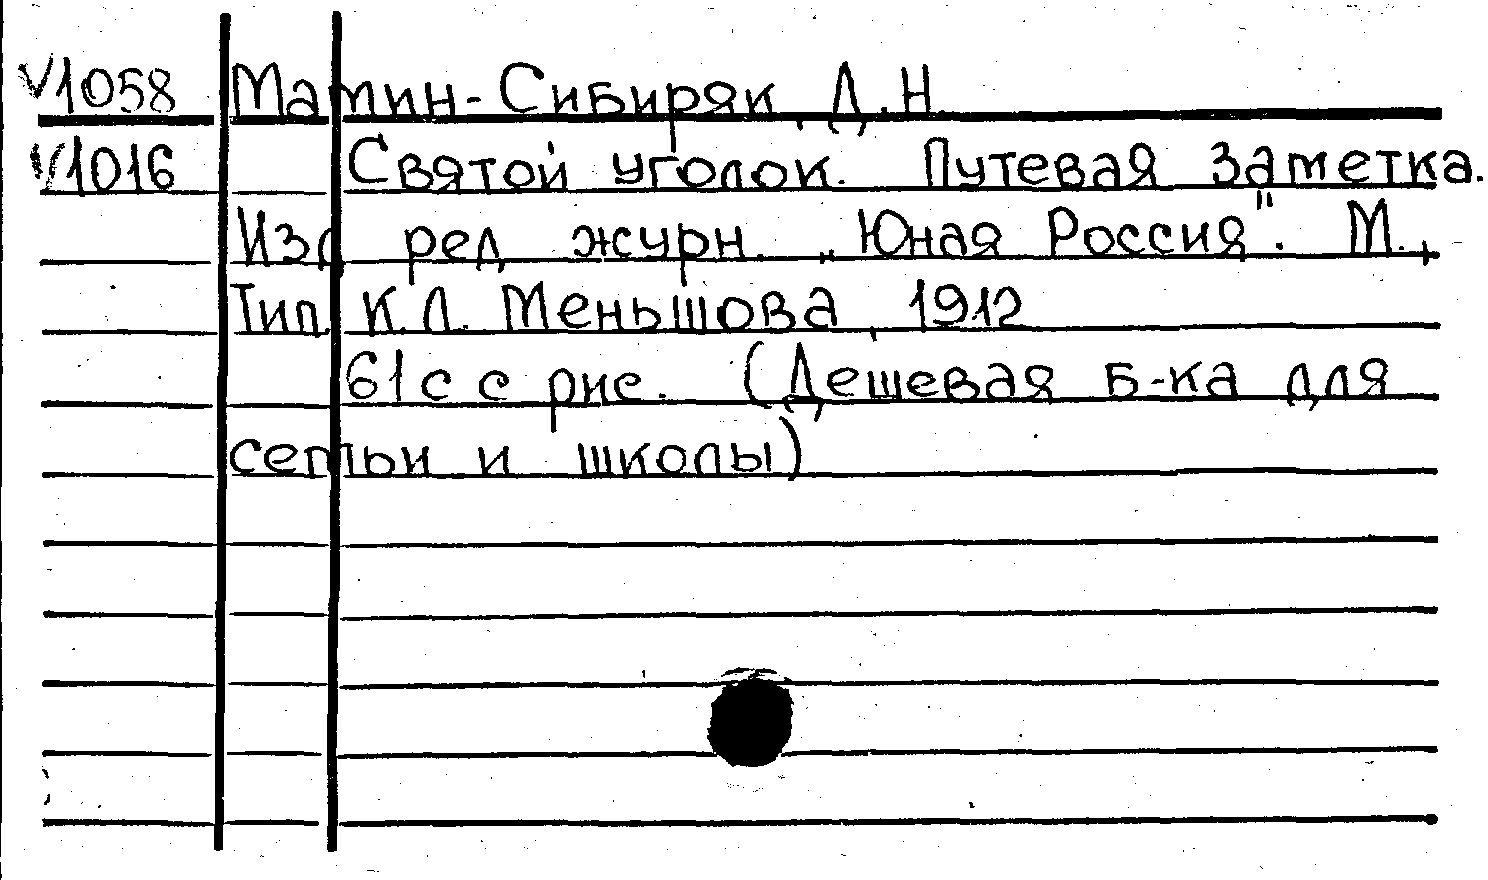 V1058 Мамин-Сибиряк, Д.Н.
V1016 Святой уголок. Путевая заметка.
Изд ред журн. „Юная Россия". М.,
Тип К.Л. Меньшова, 1912
61 с с рис. (Дешевая б-ка для
семьи и школы)